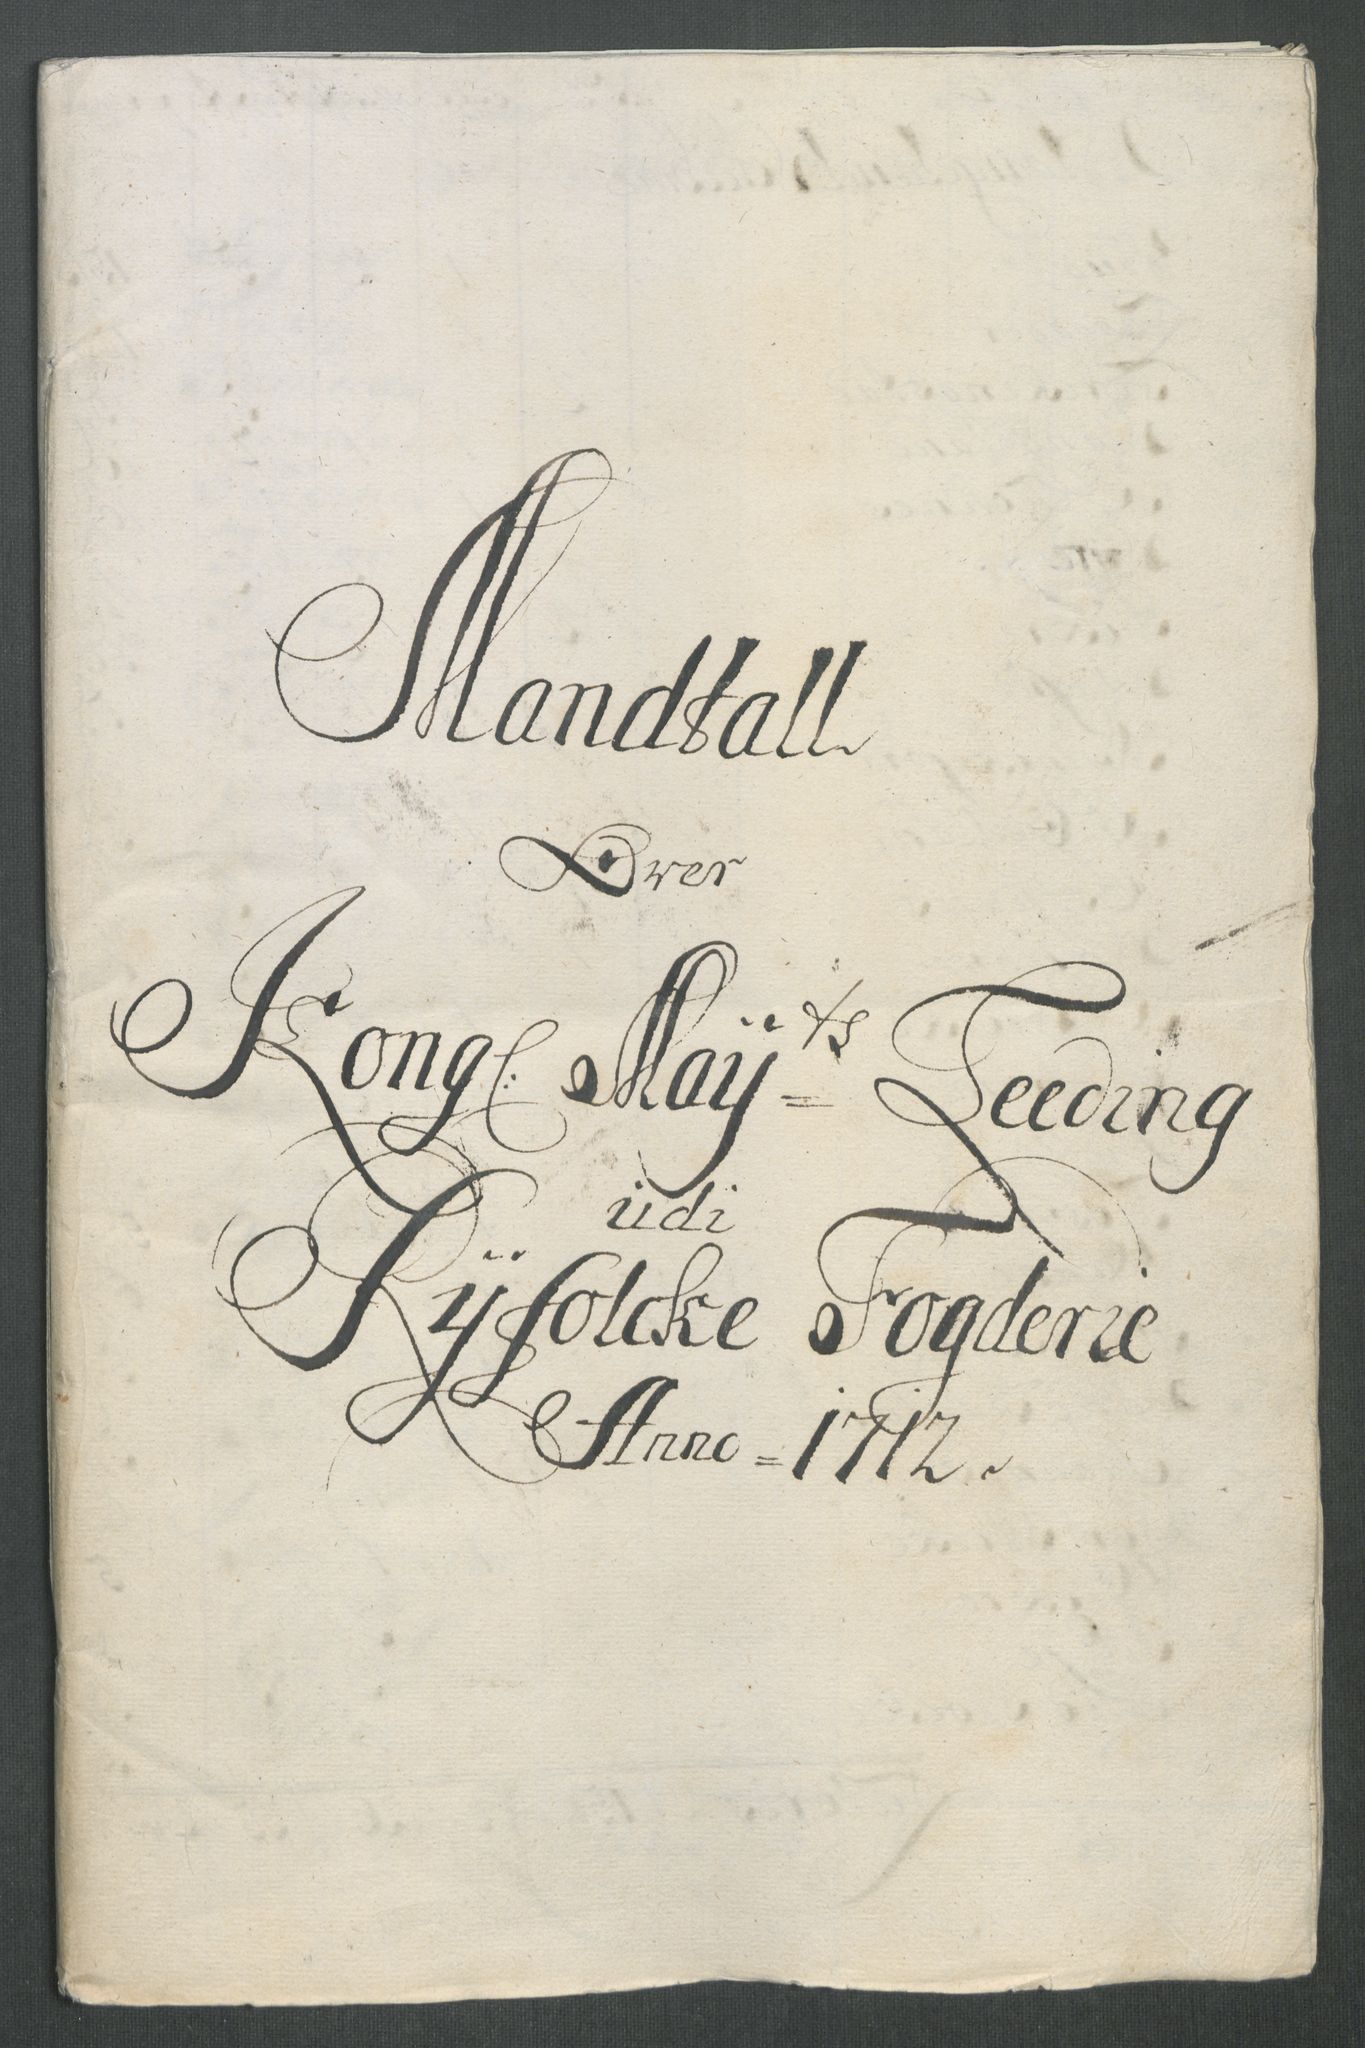 Mandtall
Over
Kongl: Maÿ=ts Teeding
udi
Rÿfolcke Fogderie
Anno=1712.